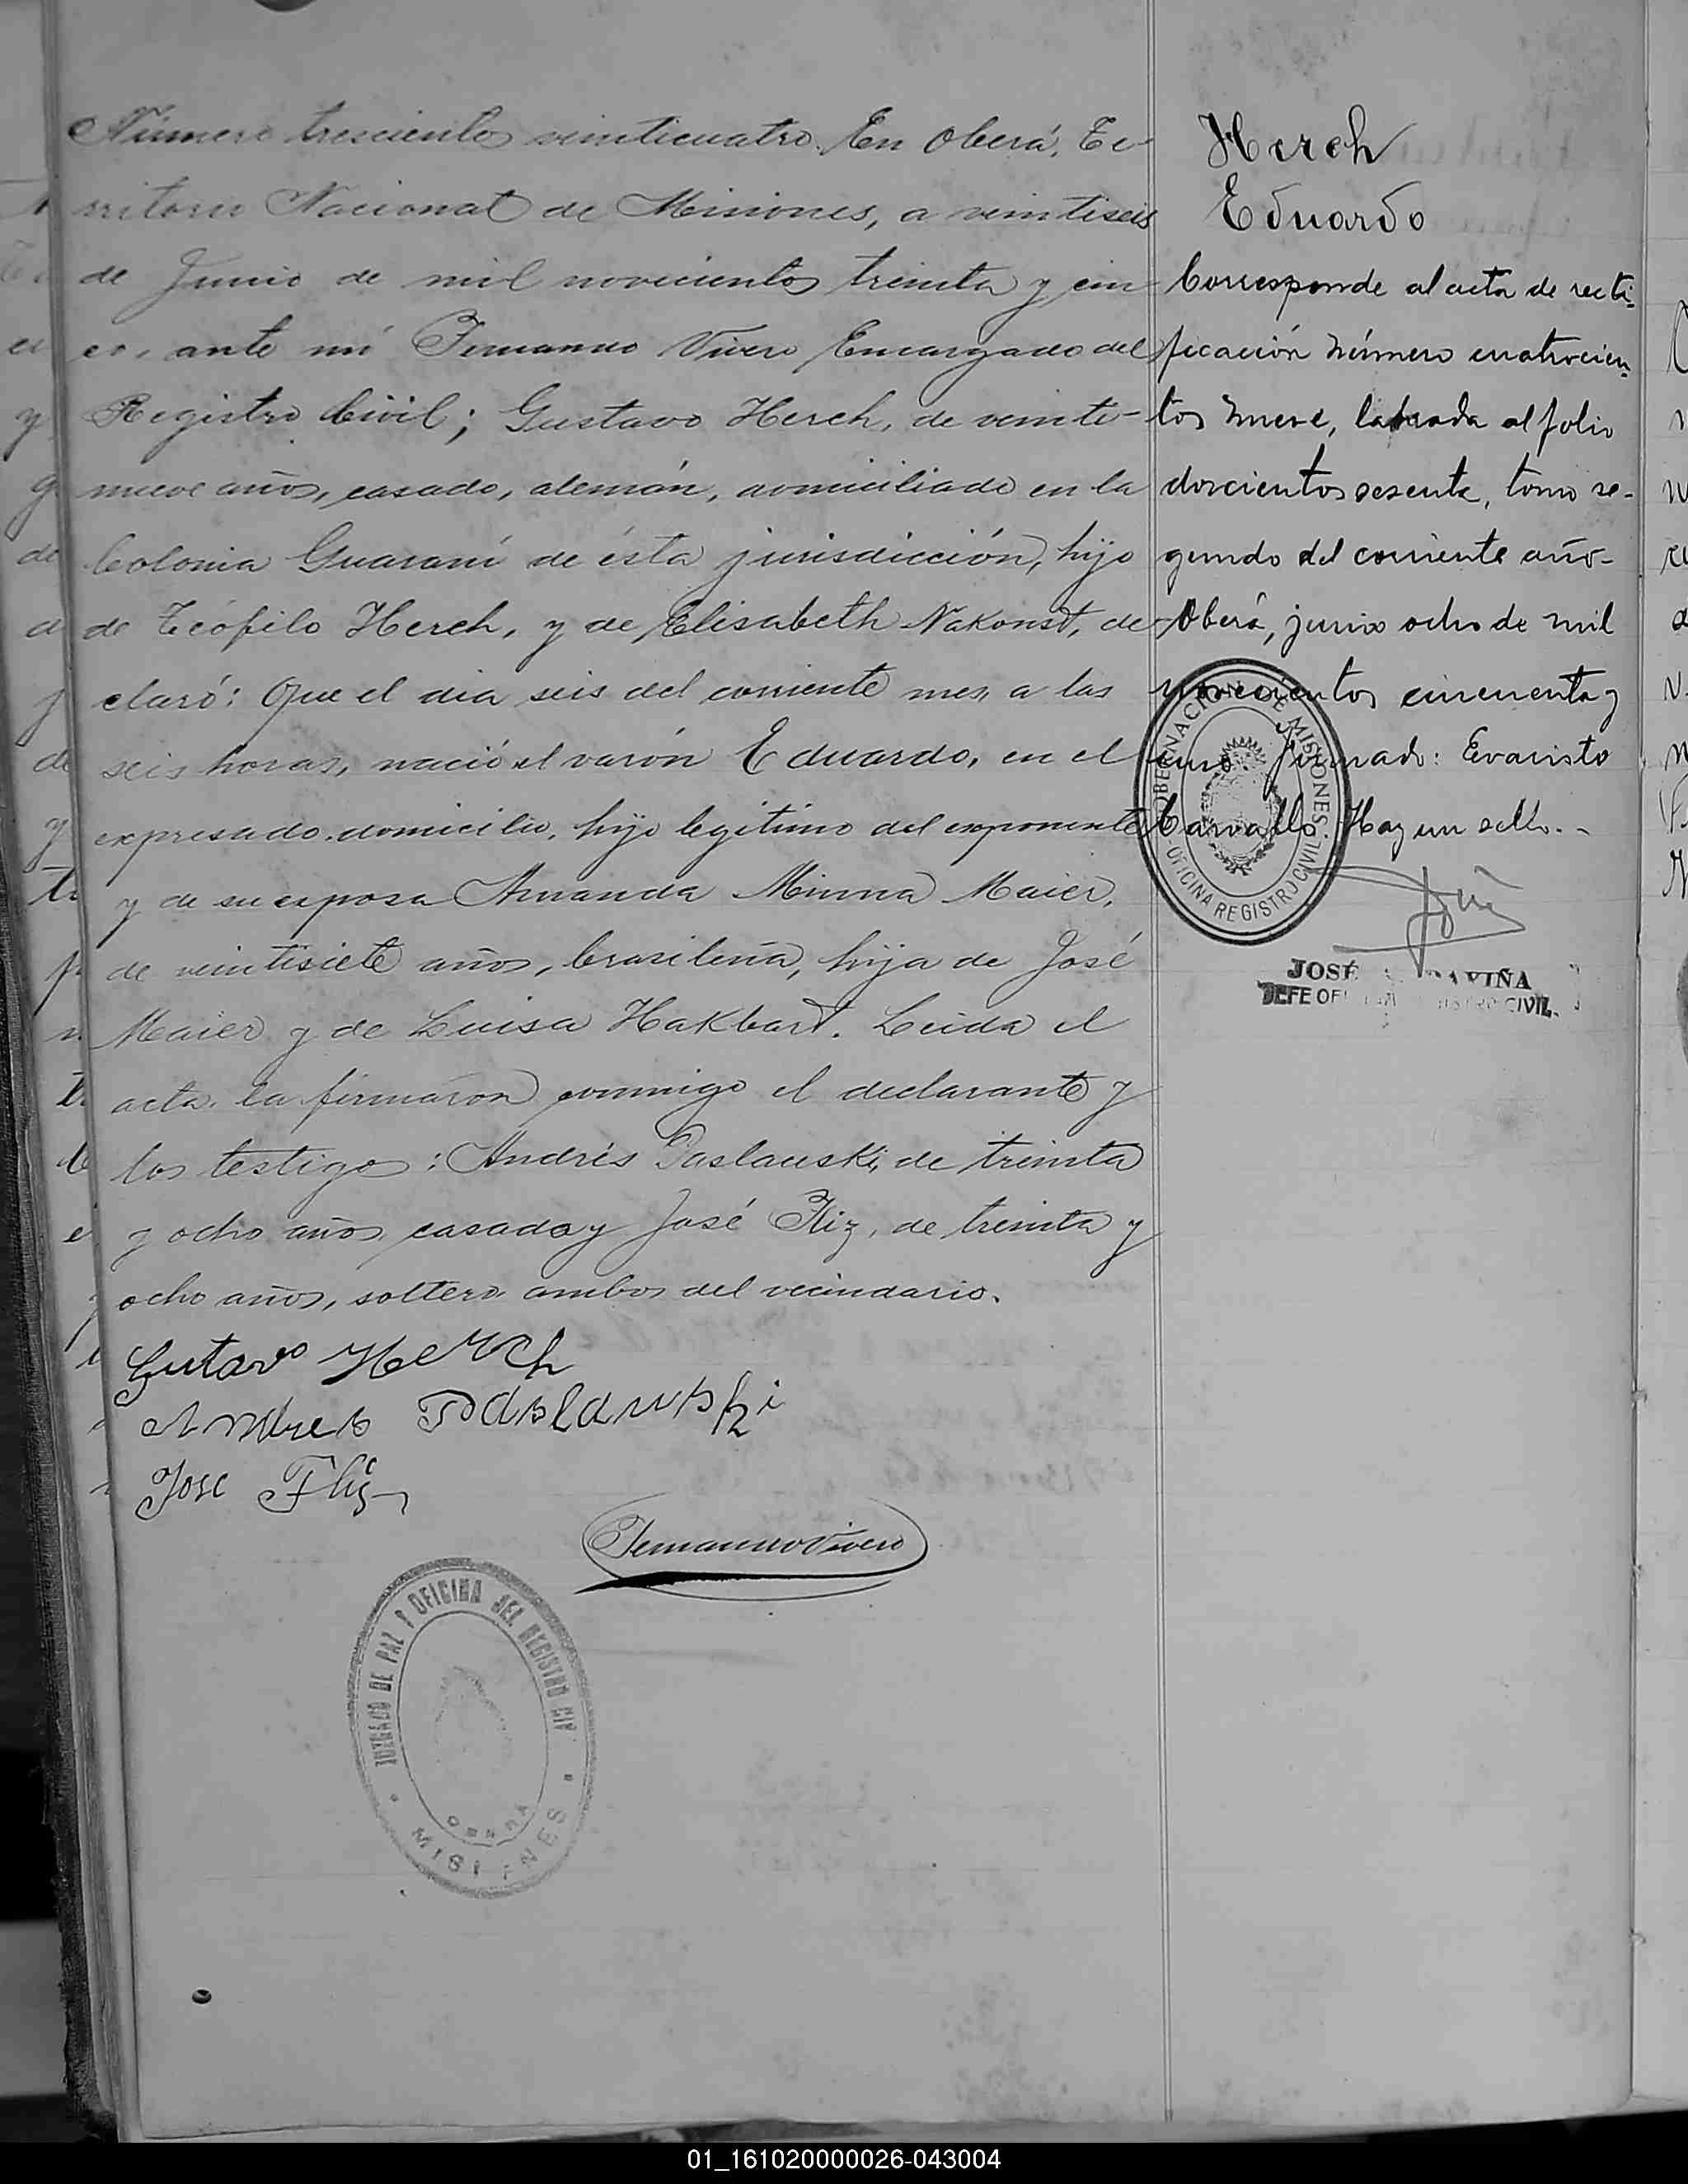 Número trescientos veinticuatro. En Oberá, Te-
rritorio Nacional de Misiones, a veintiseis
de Junio de mil novecientos treinta y cin-
co, ante mí Fernando Vivero Encargado del
Registro Civil; Gustavo Herch, de veinti-
nueve años, casado, alemán, domiciliado en la
Colonia Guaraní de ésta jurisdicción, hijo
de Teófilo Herch, y de Elisabeth Nakonst, de-
claró: Que el dia seis del corriente mes, a las
seis horas, nació el varón Eduardo, en el
expresado domicilio, hijo legítimo del exponente
y de su esposa Amanda Minna Maier,
de veintisiete años, brasileña, hija de José
Maier y de Luisa Hakbart. Leida el
acta, la firmaron conmigo el declarante y
los testigos: Andrés Paslauski, de treinta
y ocho años, casado y José Fliz, de treinta y
ocho años, soltero, ambos del vecindario.
Gutavo Herch
Andres Paslawski
Jose
Fernando Vivero
JUZGADO DE PAZ Y OFICINA DEL REGISTRO CIV
OBERA
Herch
Eduardo
Corresponde al acta de recti-
ficación número cuatrocien-
tos nueve, labrada al folio
doscientos sesenta, tomo se-
gundo del corriente año-
Oberá, junio ocho de mil
novecientos cincuenta y
uno. Firmado: Evaristo
Carvallo. Hay un sello.-
GOBERNACION DE MISIONES.
OFICINA REGISTRO CIVIL
JOSE
JEFE OFI CIVIL.
01_161020000026-043004